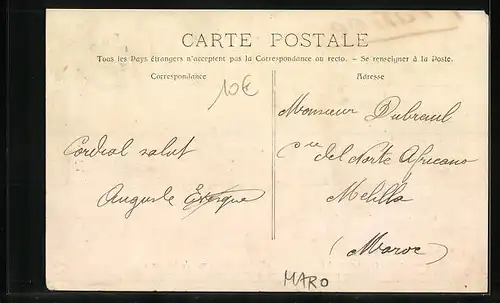 CARTE POSTALE
Tous les Pays étrangers n'acceptent pas la Correspondance au recto. - Se renseigner à la Poste.
Correspondance
Adresse
10€
Cordial salut
Auguste
Monsieur Dubreuil
Cie del Norte Africano
Melilla
(Maroc)
MARO